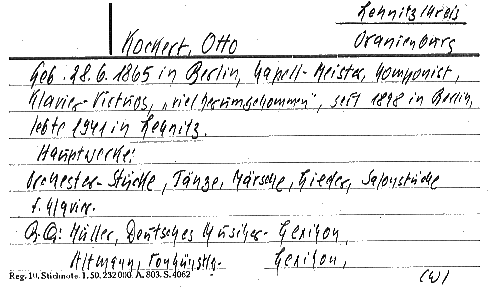 Lehnitz/Kreis
Kockert, Otto
Oranienburg
Geb. 28.6.1865 in Berlin, Kapell-Meister, Komponist,
Klavier-Virtuos, „viel herumgekommen", seit 1898 in Berlin,
lebte 1941 in Lehnitz.
Hauptwerke:
Orchester-Stücke, Tänze, Märsche, Lieder, Salonstücke
f. Klavier.
Q.Q: Müller, Deutsches Musiker-Lexikon,
Altmann, Tonkünstler-Lexikon,
Reg. 10. Stichnote. 1. 50. 232 000. A. 803. S. 4062
(W)